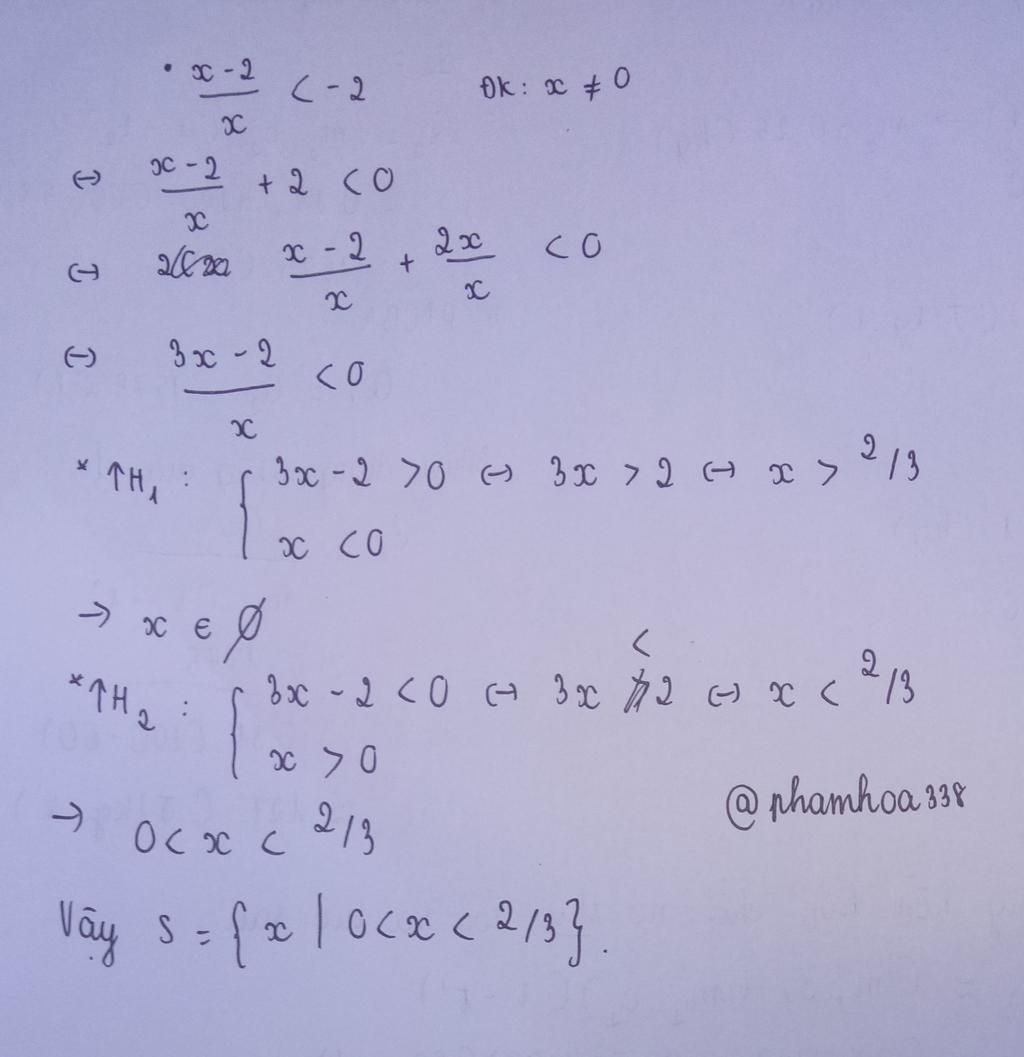 • x - 2 / x < - 2 ĐK: x ≠ 0
⇔ x - 2 / x + 2 < 0
⇔ x - 2 / x + 2x / x < 0
⇔ 3x - 2 / x < 0
* TH1 : { 3x - 2 > 0 ⇔ 3x > 2 ⇔ x > 2/3
x < 0
→ x ∈ ∅
* TH2 : { 3x - 2 < 0 ⇔ 3x < 2 ⇔ x < 2/3
x > 0
→ 0 < x < 2/3
@phamhoa338
Vậy S = { x | 0 < x < 2/3 }.